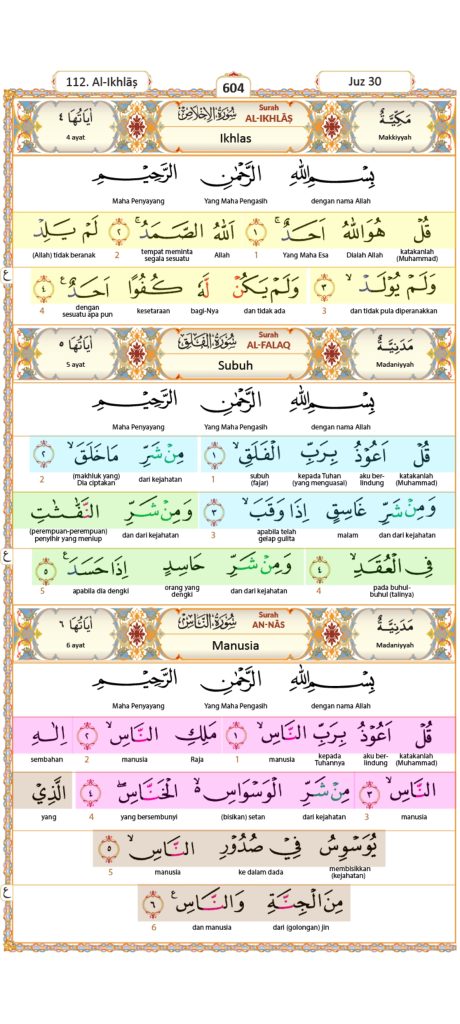 112. Al-Ikhlāṣ
604
Juz 30
مَكِّيَّةٌ
Makkiyyah
Surah
AL-IKHLĀṢ
سُوْرَةُ الْاِخْلَاصِ
Ikhlas
اٰيَاتُهَا ٤
4 ayat
بِسْمِ اللّٰهِ الرَّحْمٰنِ الرَّحِيْمِ
dengan nama Allah Yang Maha Pengasih Maha Penyayang
قُلْ هُوَ اللّٰهُ اَحَدٌۚ ١ اَللّٰهُ الصَّمَدُۚ ٢ لَمْ يَلِدْ
katakanlah (Muhammad) Dialah Allah Yang Maha Esa 1 Allah tempat meminta segala sesuatu 2 (Allah) tidak beranak
وَلَمْ يُوْلَدْۙ ٣ وَلَمْ يَكُنْ لَّهٗ كُفُوًا اَحَدٌࣖ ٤
dan tidak pula diperanakkan 3 dan tidak ada bagi-Nya kesetaraan dengan sesuatu apa pun 4
ع
مَدَنِيَّةٌ
Madaniyyah
Surah
AL-FALAQ
سُوْرَةُ الْفَلَقِ
Subuh
اٰيَاتُهَا ٥
5 ayat
بِسْمِ اللّٰهِ الرَّحْمٰنِ الرَّحِيْمِ
dengan nama Allah Yang Maha Pengasih Maha Penyayang
قُلْ اَعُوْذُ بِرَبِّ الْفَلَقِۙ ١ مِنْ شَرِّ مَا خَلَقَۙ ٢
katakanlah (Muhammad) aku ber-lindung kepada Tuhan (yang menguasai) subuh (fajar) 1 dari kejahatan (makhluk yang) Dia ciptakan 2
وَمِنْ شَرِّ غَاسِقٍ اِذَا وَقَبَۙ ٣ وَمِنْ شَرِّ النَّفّٰثٰتِ
dan dari kejahatan malam apabila telah gelap gulita 3 dan dari kejahatan (perempuan-perempuan) penyihir yang meniup
فِى الْعُقَدِۙ ٤ وَمِنْ شَرِّ حَاسِدٍ اِذَا حَسَدَࣖ ٥
pada buhul-buhul (talinya) 4 dan dari kejahatan orang yang dengki apabila dia dengki 5
ع
مَدَنِيَّةٌ
Madaniyyah
Surah
AN-NĀS
سُوْرَةُ النَّاسِ
Manusia
اٰيَاتُهَا ٦
6 ayat
بِسْمِ اللّٰهِ الرَّحْمٰنِ الرَّحِيْمِ
dengan nama Allah Yang Maha Pengasih Maha Penyayang
قُلْ اَعُوْذُ بِرَبِّ النَّاسِۙ ١ مَلِكِ النَّاسِۙ ٢ اِلٰهِ
katakanlah (Muhammad) aku ber-lindung kepada Tuhannya manusia 1 Raja manusia 2 sembahan
النَّاسِۙ ٣ مِنْ شَرِّ الْوَسْوَاسِ ەۙ الْخَنَّاسِۖ ٤ الَّذِيْ
manusia 3 dari kejahatan (bisikan) setan yang bersembunyi 4 yang
يُوَسْوِسُ فِيْ صُدُوْرِ النَّاسِۙ ٥
membisikkan (kejahatan) ke dalam dada manusia 5
مِنَ الْجِنَّةِ وَالنَّاسِࣖ ٦
dari (golongan) jin dan manusia 6
ع